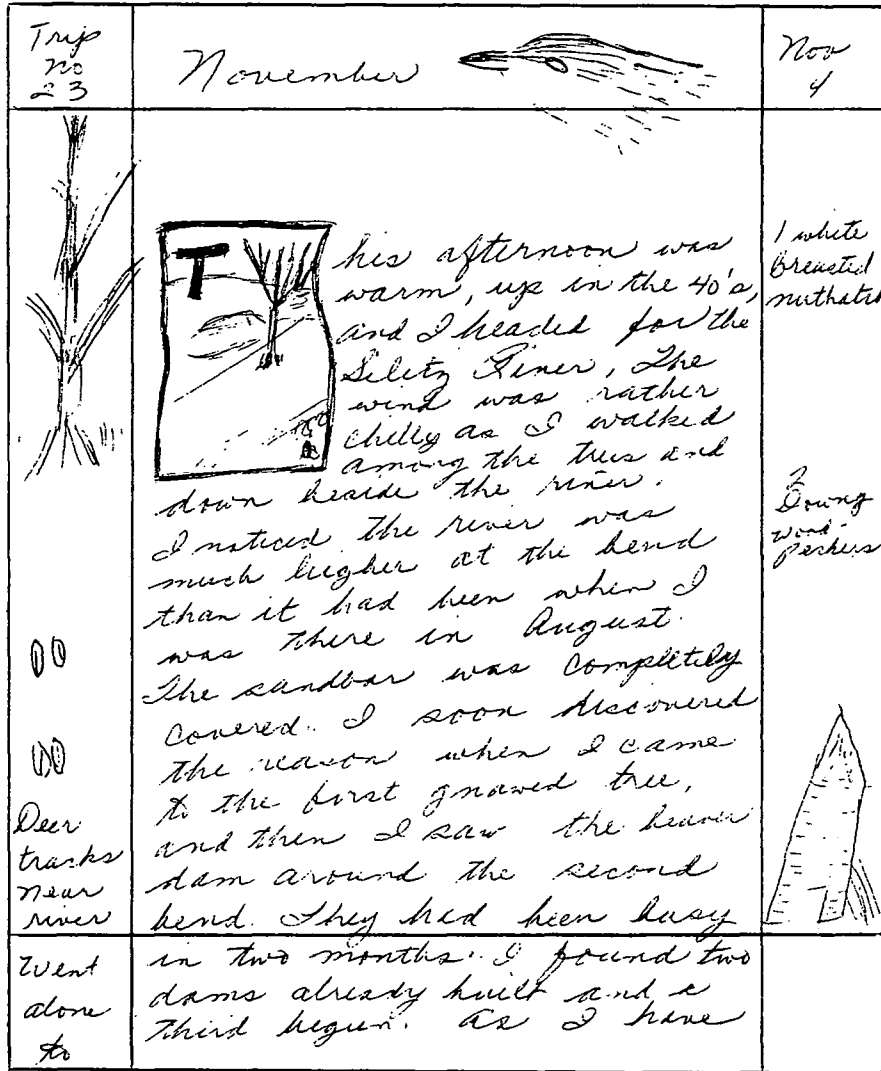 Trip
no
23
November
Nov
4
This afternoon was
warm, up in the 40's,
and I headed for the
Siletz River. The
wind was rather
chilly as I walked
among the trees and
down beside the river.
I noticed the river was
much higher at the bend
than it had been when I
was there in August.
The sandbar was completely
covered. I soon discovered
the reason when I came
to the first gnawed tree,
and then I saw the beaver
dam around the second
bend. They had been busy
in two months. I found two
dams already built and a
third begun. As I have
Deer
tracks
near
river
Went
alone
to
1 white
breasted
nuthatch
2
Downy
wood-
peckers